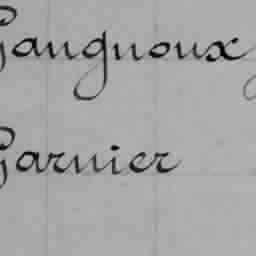 Gaugnoux
Garnier